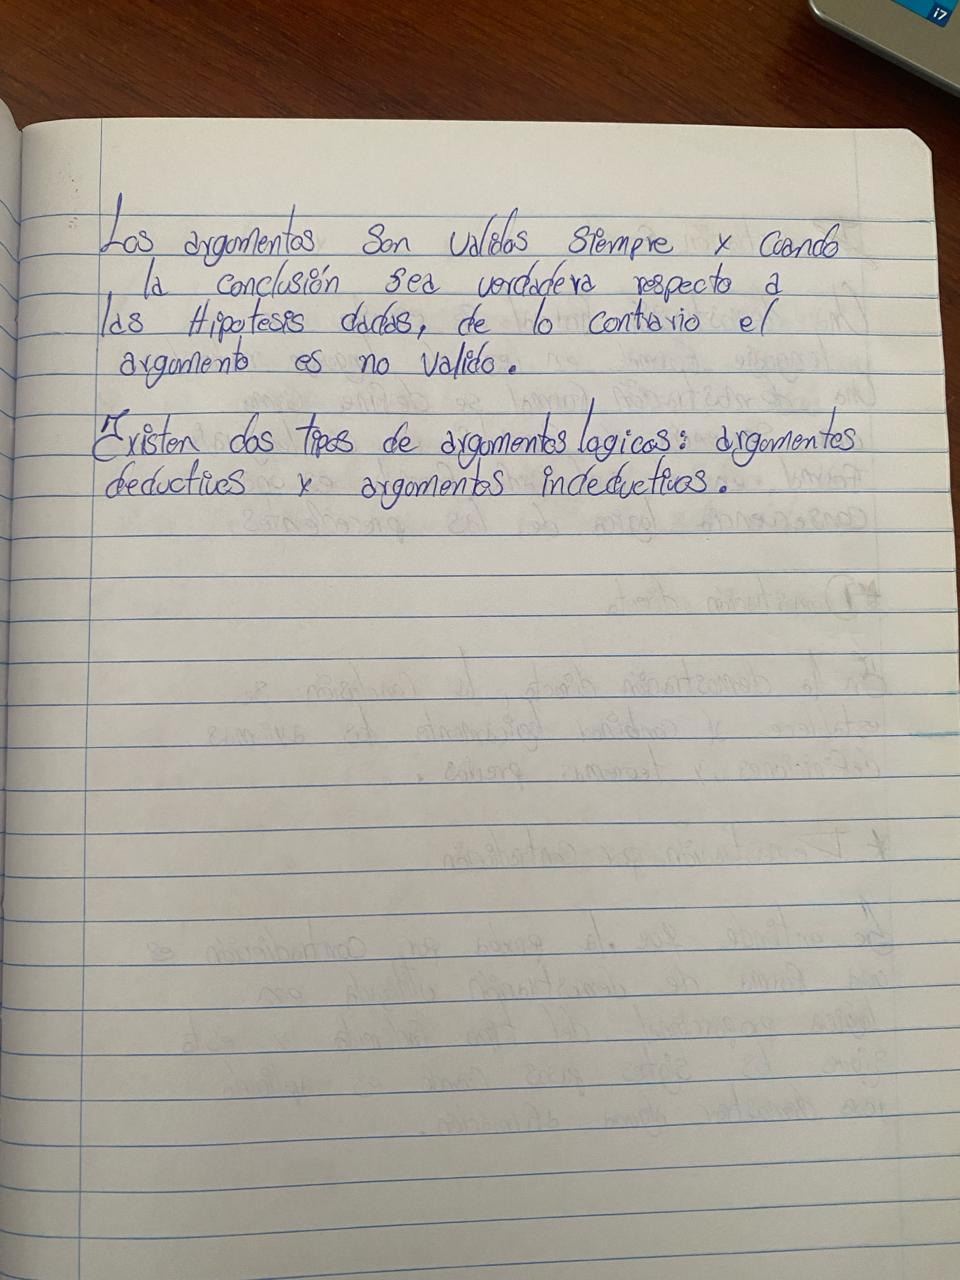 i7
Los argumentos son validos siempre y cuando
la conclusión sea verdadera respecto a
las Hipotesis dadas, de lo contrario el
argumento es no valido.
Existen dos tipos de argumentos logicos: argumentos
deductivos y argumentos indeductivos.